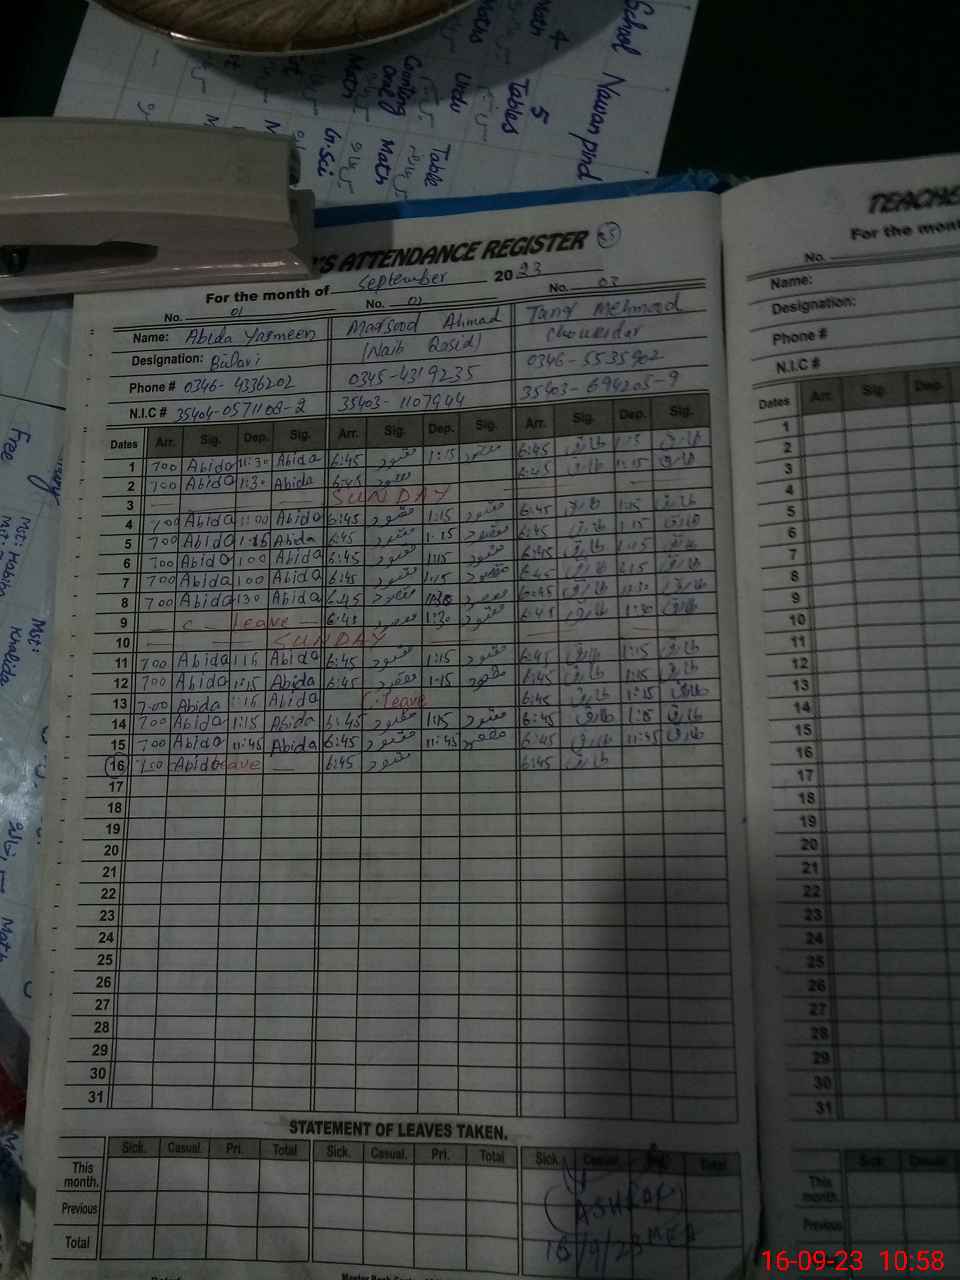 School Nawan pind
Math 4 Tables 5
Maths Urdu
Counting oral Math Table
Math G.Sci Math
'S ATTENDANCE REGISTER 35
For the month of September 2023
No. 01 No. 02 No. 03
Name: Abida Yasmeen Maqsood Ahmad Tariq Mehmood
Designation: (Naib Qasid) Chowkidar
Phone # 0346-4336202 0345-4319235 0346-5535902
N.I.C # 35404-0571108-2 35403-1107944 35403-694205-9
Dates Arr. Sig. Dep. Sig. Arr. Sig. Dep. Sig. Arr. Sig. Dep. Sig.
1 700 Abida 11:30 Abida 6:45 مقصود 1:15 مقصود 6:45 طارق 1:15 طارق
2 700 Abida 1:30 Abida 6:45 مقصود 6:45 طارق 1:15 طارق
3 SUNDAY
4 700 Abida 1:00 Abida 6:45 مقصود 1:15 مقصود 6:45 طارق 1:15 طارق
5 700 Abida 1:15 Abida 6:45 مقصود 1:15 مقصود 6:45 طارق 1:15 طارق
6 700 Abida 1:00 Abida 6:45 مقصود 1:15 مقصود 6:45 طارق 1:15 طارق
7 700 Abida 1:00 Abida 6:45 مقصود 1:15 مقصود 6:45 طارق 1:15 طارق
8 700 Abida 1:30 Abida 6:45 مقصود مقصود 6:45 طارق طارق
9 C leave 6:45 مقصود 1:30 مقصود 6:45 طارق 1:30 طارق
10 SUNDAY
11 700 Abida 1:15 Abida 6:45 مقصود 1:15 مقصود 6:45 طارق 1:15 طارق
12 700 Abida 1:15 Abida 6:45 مقصود 1:15 مقصود 6:45 طارق 1:15 طارق
13 7:00 Abida 1:15 Abida C. leave 6:45 طارق 1:15 طارق
14 700 Abida 1:15 Abida 6:45 مقصود 1:15 مقصود 6:45 طارق 1:15 طارق
15 700 Abida 11:45 Abida 6:45 مقصود 11:45 مقصود 6:45 طارق 11:45 طارق
16 Abida leave 6:45 مقصود 6:45 طارق
17
18
19
20
21
22
23
24
25
26
27
28
29
30
31
STATEMENT OF LEAVES TAKEN.
Sick. Casual. Pri. Total Sick. Casual. Pri. Total Sick Casual. Total
This month.
Previous
Total
(ASHRAF)
16/9/23 MEA
TEACHE
For the mont
No.
Name:
Designation:
Phone #
N.I.C #
Dates Arr. Sig. Dep.
1
2
3
4
5
6
7
8
9
10
11
12
13
14
15
16
17
18
19
20
21
22
23
24
25
26
27
28
29
30
31
Sick Casual
This month
Previous
Total
Free
Mst: Habiba
Mst: Khalida
Math
16-09-23 10:58